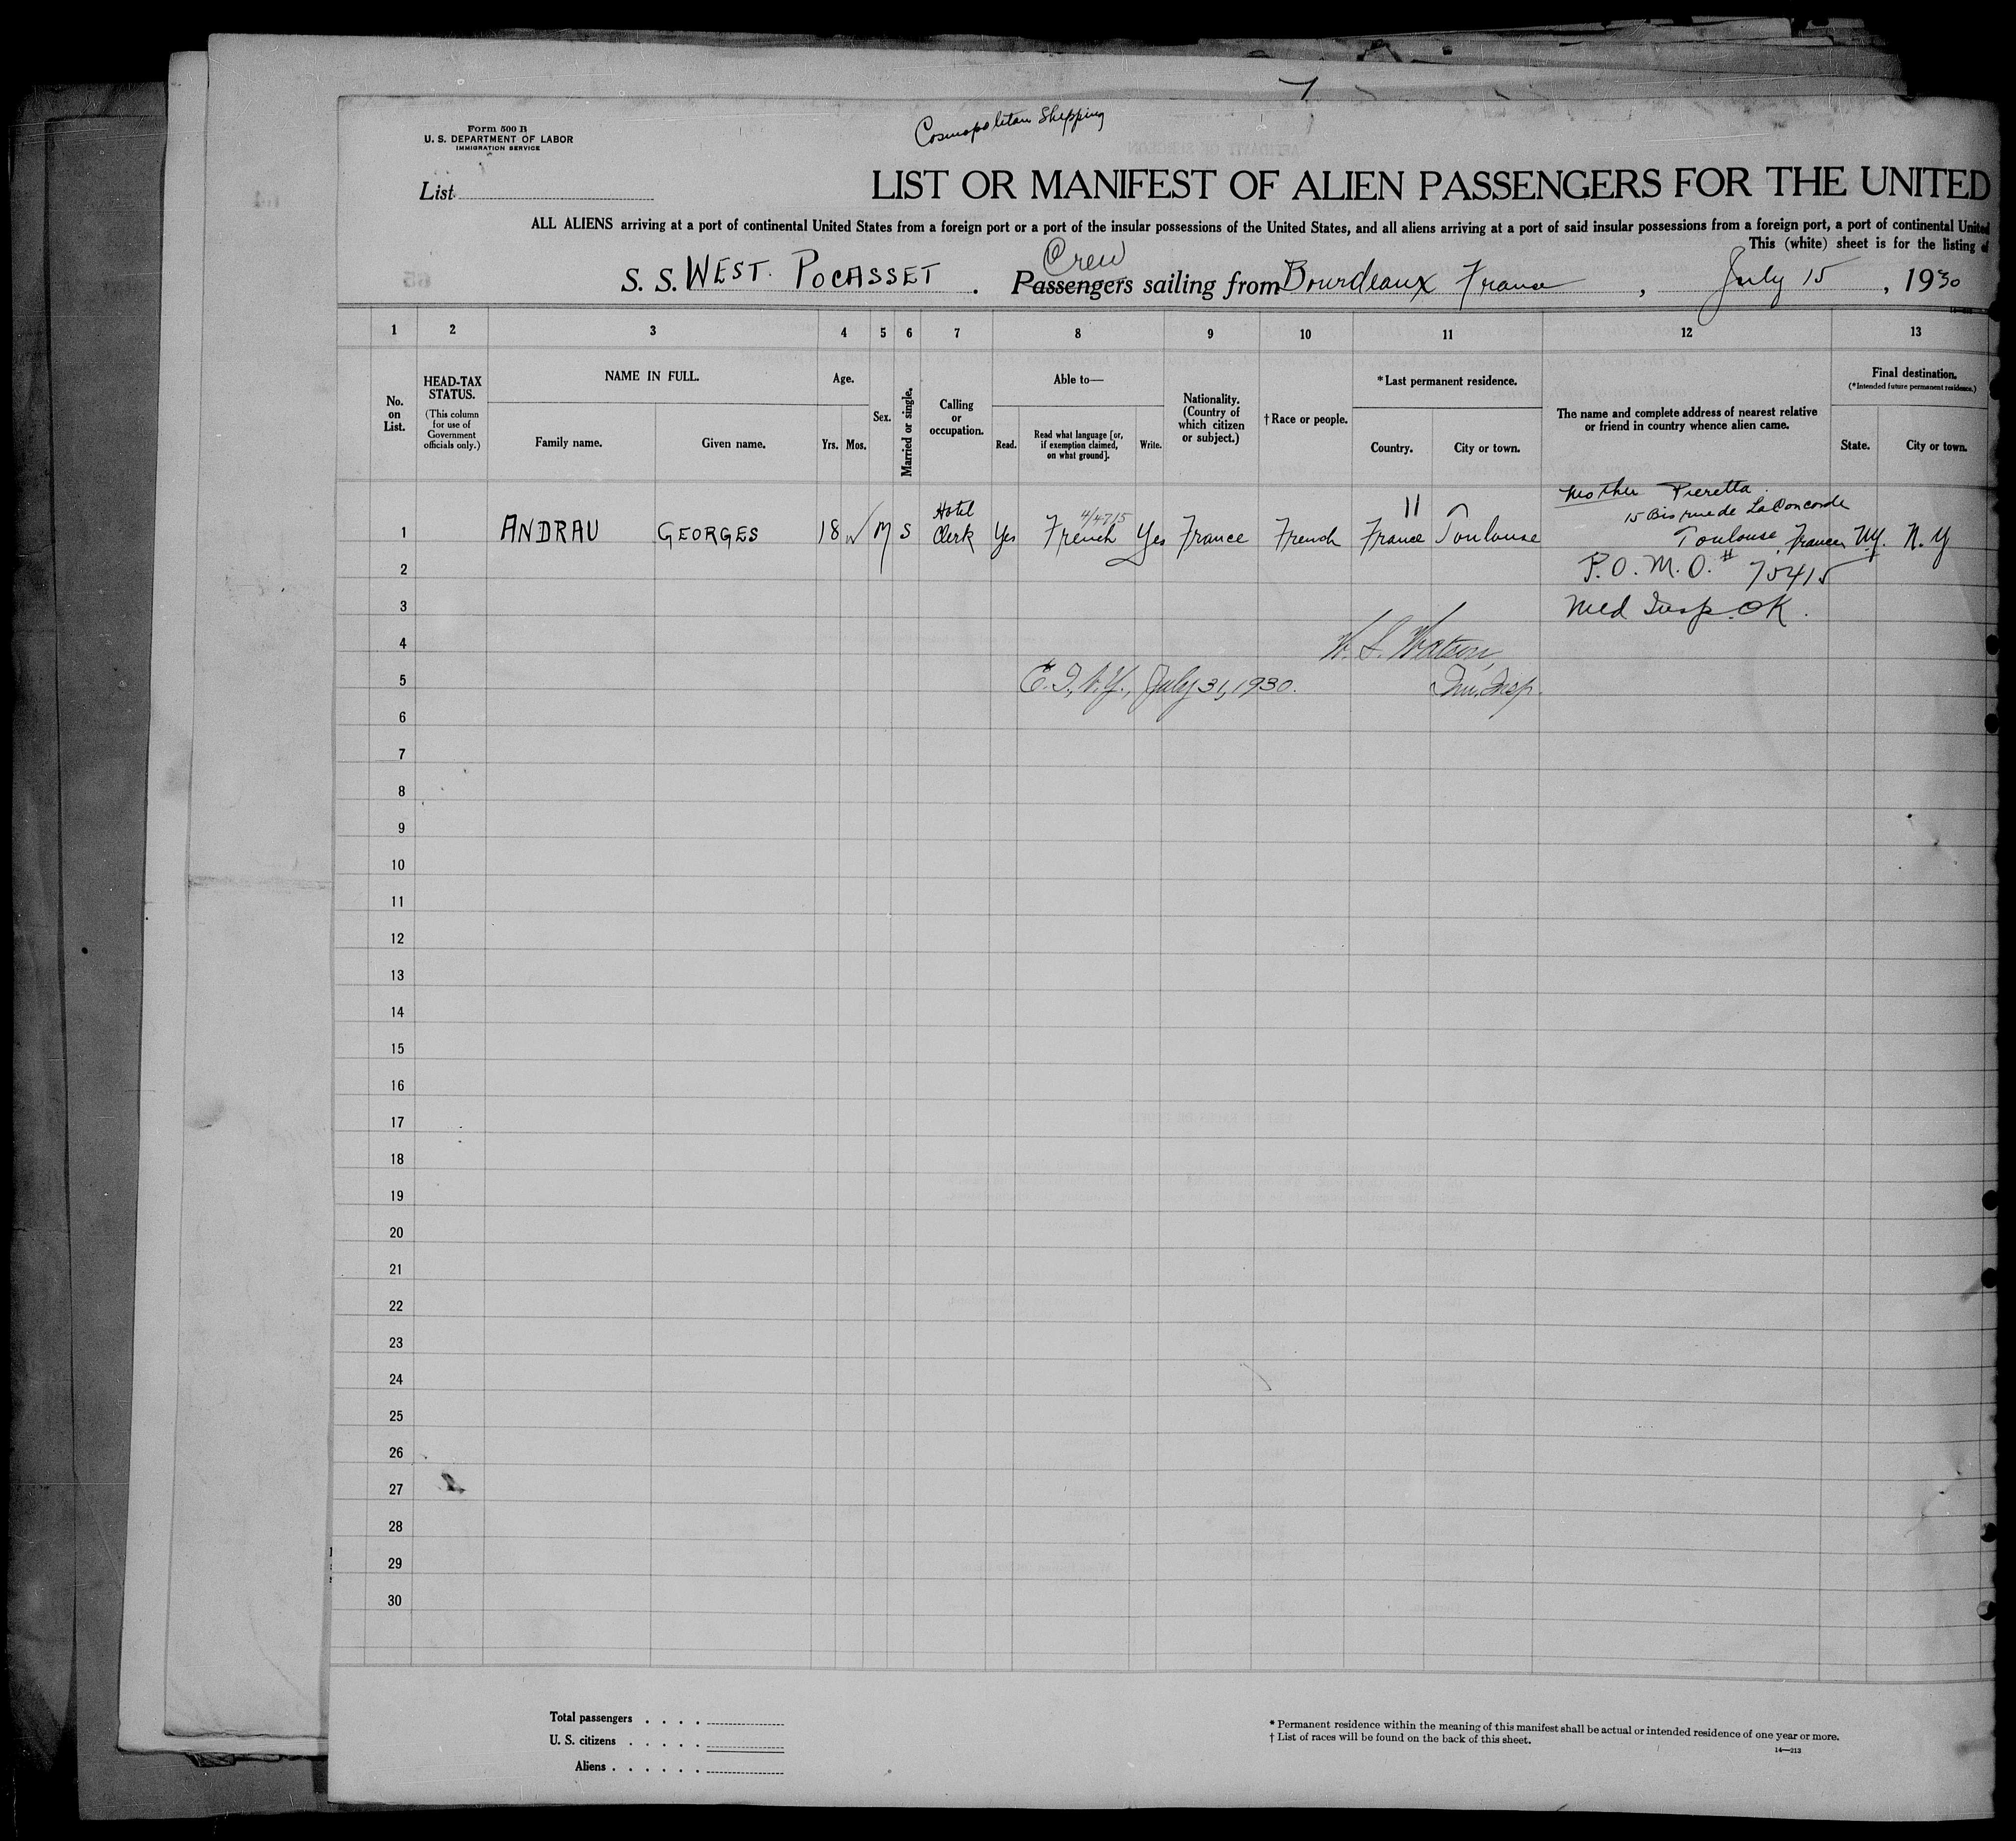 Cosmopolitan Shipping
Form 500 B
U. S. DEPARTMENT OF LABOR
IMMIGRATION SERVICE
List
LIST OR MANIFEST OF ALIEN PASSENGERS FOR THE UNITED
ALL ALIENS arriving at a port of continental United States from a foreign port or a port of the insular possessions of the United States, and all aliens arriving at a port of said insular possessions from a foreign port, a port of continental United
This (white) sheet is for the listing
Crew
S. S. WEST. POCASSET. Passengers sailing from Bourdeaux France, July 15, 1930
1 2 3 4 5 6 7 8 9 10 11 12 13
No. on List.
HEAD-TAX STATUS.
(This column for use of Government officials only.)
NAME IN FULL.
Family name. Given name.
Age.
Yrs. Mos.
Sex.
Married or single.
Calling or occupation.
Able to—
Read. Read what language [or, if exemption claimed, on what ground]. Write.
Nationality. (Country of which citizen or subject.)
† Race or people.
* Last permanent residence.
Country. City or town.
The name and complete address of nearest relative or friend in country whence alien came.
Final destination.
(* Intended future permanent residence.)
State. City or town.
Mother Pieretta
15 Bis rue de La Concorde
1 ANDRAU GEORGES 18 M S Hotel Clerk Yes French 4/4715 Yes France French France Toulouse Toulouse, France NY. N.Y
2 P.O.M.O. # 75415
3 Med Insp. OK.
4 W. S. Watson,
5 E.I., N.Y., July 31, 1930. Im. Insp.
6
7
8
9
10
11
12
13
14
15
16
17
18
19
20
21
22
23
24
25
26
27
28
29
30
Total passengers
U. S. citizens
Aliens
* Permanent residence within the meaning of this manifest shall be actual or intended residence of one year or more.
† List of races will be found on the back of this sheet.
14—213